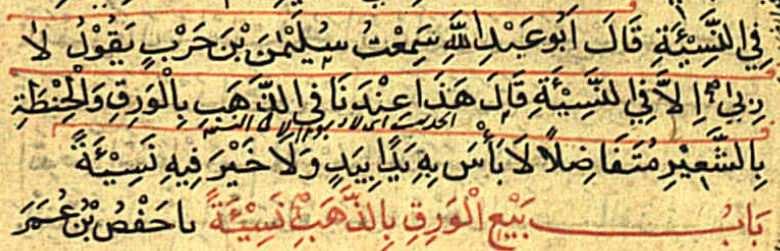 فِي النَّسِيْئَةِ قَالَ اَبُو عَبْدِ اللَّهِ سَمِعْتُ سُلَيْمٰنَ بْنَ حَرْبٍ يَقُوْلُ لَا
رِبٰى اِلاَّ فِي النَّسِيْئَةِ قَالَ هٰذَا عِنْدَنَا فِي الذَّهَبِ بِالْوَرِقِ وَالْحِنْطَةِ
بِالشَّعِيْرِ مُتَفَاضِلًا لَا بَأْسَ بِهِ يَدًا بِيَدٍ وَلَا خَيْرَ فِيهِ نَسِيْئَةً
بَابُ بَيْعِ الْوَرِقِ بِالذَّهَبِ نَسِيْئَةً نا حَفْصُ بْنُ عُمَرَ